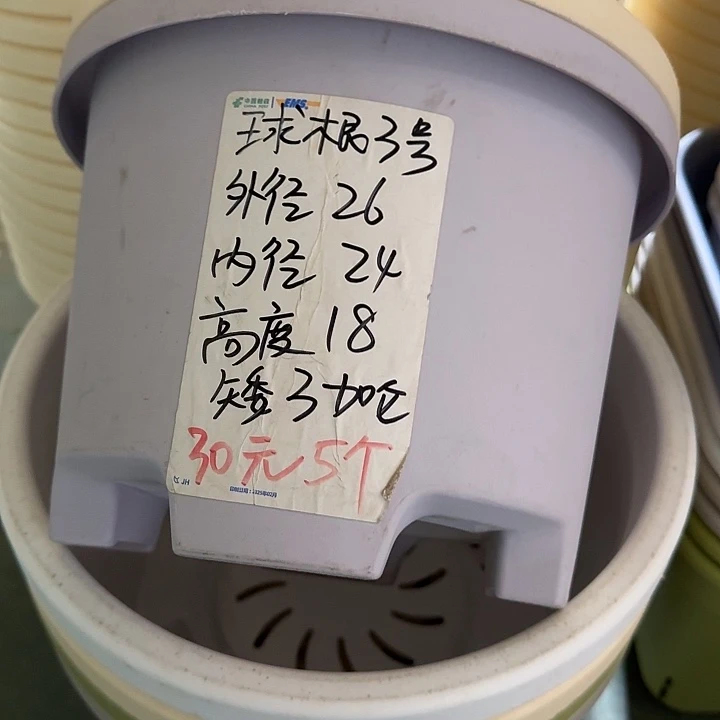 中国邮政 EMS
球根3号
外径 26
内径 24
高度 18
矮3加仑
30元5个
JH
印制日期：2025年02月